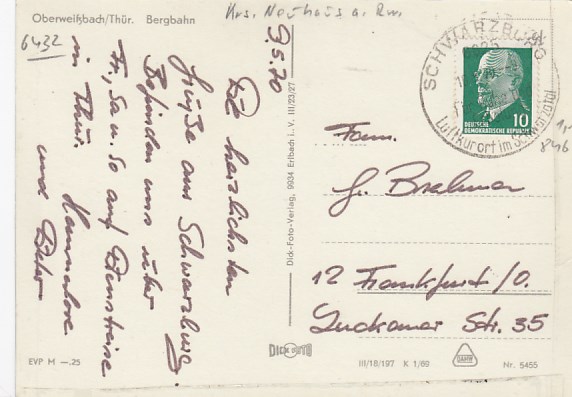 Oberweißbach/Thür. Bergbahn
Krs. Neuhaus a. Rw.
6432
9.5.70
Die herzlichsten
Grüße aus Schwarzburg.
Befinden uns
Fr, Sa u. So auf Dienstreise
in Thür.
Hannelore
und
Dick-Foto-Verlag, 9934 Erlbach i. V. III/23/27
SCHWARZBURG
Luftkurort im Schwarzatal
10
DEUTSCHE
DEMOKRATISCHE REPUBLIK
846
Fam.
G. Brahmer
12 Frankfurt/O.
Luckauer Str. 35
EVP M —.25
DICK FOTO
III/18/197 K 1/69
Nr. 5455